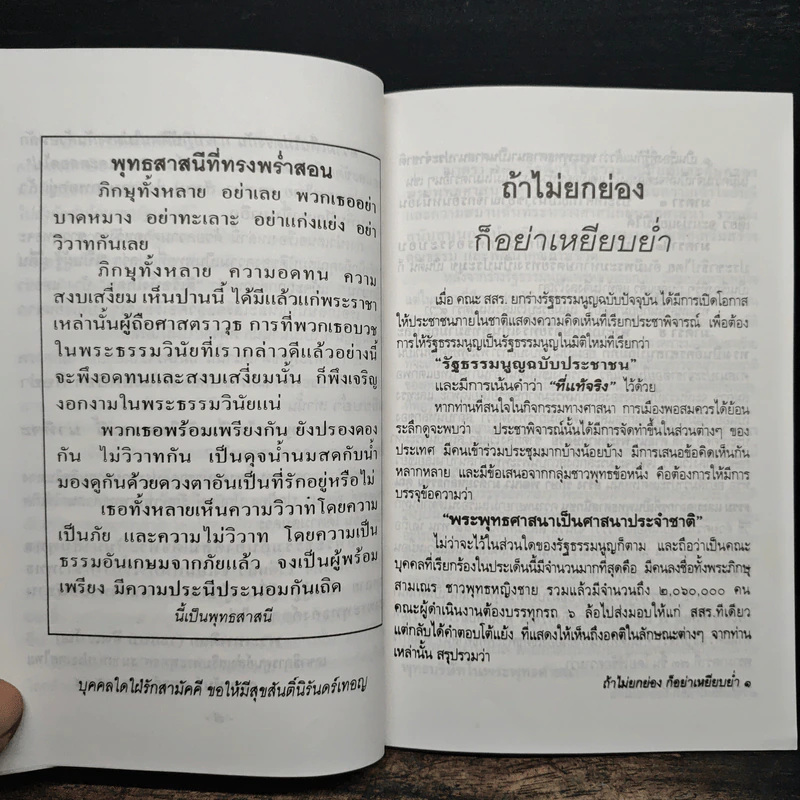 พุทธสาสนีที่ทรงพร่ำสอน
ภิกษุทั้งหลาย อย่าเลย พวกเธออย่า
บาดหมาง อย่าทะเลาะ อย่าแก่งแย่ง อย่า
วิวาทกันเลย
ภิกษุทั้งหลาย ความอดทน ความ
สงบเสงี่ยม เห็นปานนี้ ได้มีแล้วแก่พระราชา
เหล่านั้นผู้ถือศาสตราวุธ การที่พวกเธอบวช
ในพระธรรมวินัยที่เรากล่าวดีแล้วอย่างนี้
จะพึงอดทนและสงบเสงี่ยมนั้น ก็พึงเจริญ
งอกงามในพระธรรมวินัยแน่
พวกเธอพร้อมเพรียงกัน ยังปรองดอง
กัน ไม่วิวาทกัน เป็นดุจน้ำนมสดกับน้ำ
มองดูกันด้วยดวงตาอันเป็นที่รักอยู่หรือไม่
เธอทั้งหลายเห็นความวิวาทโดยความ
เป็นภัย และความไม่วิวาท โดยความเป็น
ธรรมอันเกษมจากภัยแล้ว จงเป็นผู้พร้อม
เพรียง มีความประนีประนอมกันเถิด
นี้เป็นพุทธสาสนี
บุคคลใดใฝ่รักสามัคคี ขอให้มีสุขสันติ์นิรันดร์เทอญ
ถ้าไม่ยกย่อง
ก็อย่าเหยียบย่ำ
เมื่อ คณะ สสร. ยกร่างรัฐธรรมนูญฉบับปัจจุบัน ได้มีการเปิดโอกาส
ให้ประชาชนภายในชาติแสดงความคิดเห็นที่เรียกประชาพิจารณ์ เพื่อต้อง
การให้รัฐธรรมนูญเป็นรัฐธรรมนูญในมิติใหม่ที่เรียกว่า
“รัฐธรรมนูญฉบับประชาชน”
และมีการเน้นคำว่า “ที่แท้จริง” ไว้ด้วย
หากท่านที่สนใจในกิจกรรมทางศาสนา การเมืองพอสมควรได้ย้อน
ระลึกดูจะพบว่า ประชาพิจารณ์นั้นได้มีการจัดทำขึ้นในส่วนต่างๆ ของ
ประเทศ มีคนเข้าร่วมประชุมมากบ้างน้อยบ้าง มีการเสนอข้อคิดเห็นกัน
หลากหลาย และมีข้อเสนอจากกลุ่มชาวพุทธข้อหนึ่ง คือต้องการให้มีการ
บรรจุข้อความว่า
“พระพุทธศาสนาเป็นศาสนาประจำชาติ”
ไม่ว่าจะไว้ในส่วนใดของรัฐธรรมนูญก็ตาม และถือว่าเป็นคณะ
บุคคลที่เรียกร้องในประเด็นนี้มีจำนวนมากที่สุดคือ มีคนลงชื่อทั้งพระภิกษุ
สามเณร ชาวพุทธหญิงชาย รวมแล้วมีจำนวนถึง ๒,๐๖๐,๐๐๐ คน
คณะผู้ดำเนินงานต้องบรรทุกรถ ๖ ล้อไปส่งมอบให้แก่ สสร.ทีเดียว
แต่กลับได้คำตอบโต้แย้ง ที่แสดงให้เห็นถึงอคติในลักษณะต่างๆ จากท่าน
เหล่านั้น สรุปรวมว่า
ถ้าไม่ยกย่อง ก็อย่าเหยียบย่ำ ๑